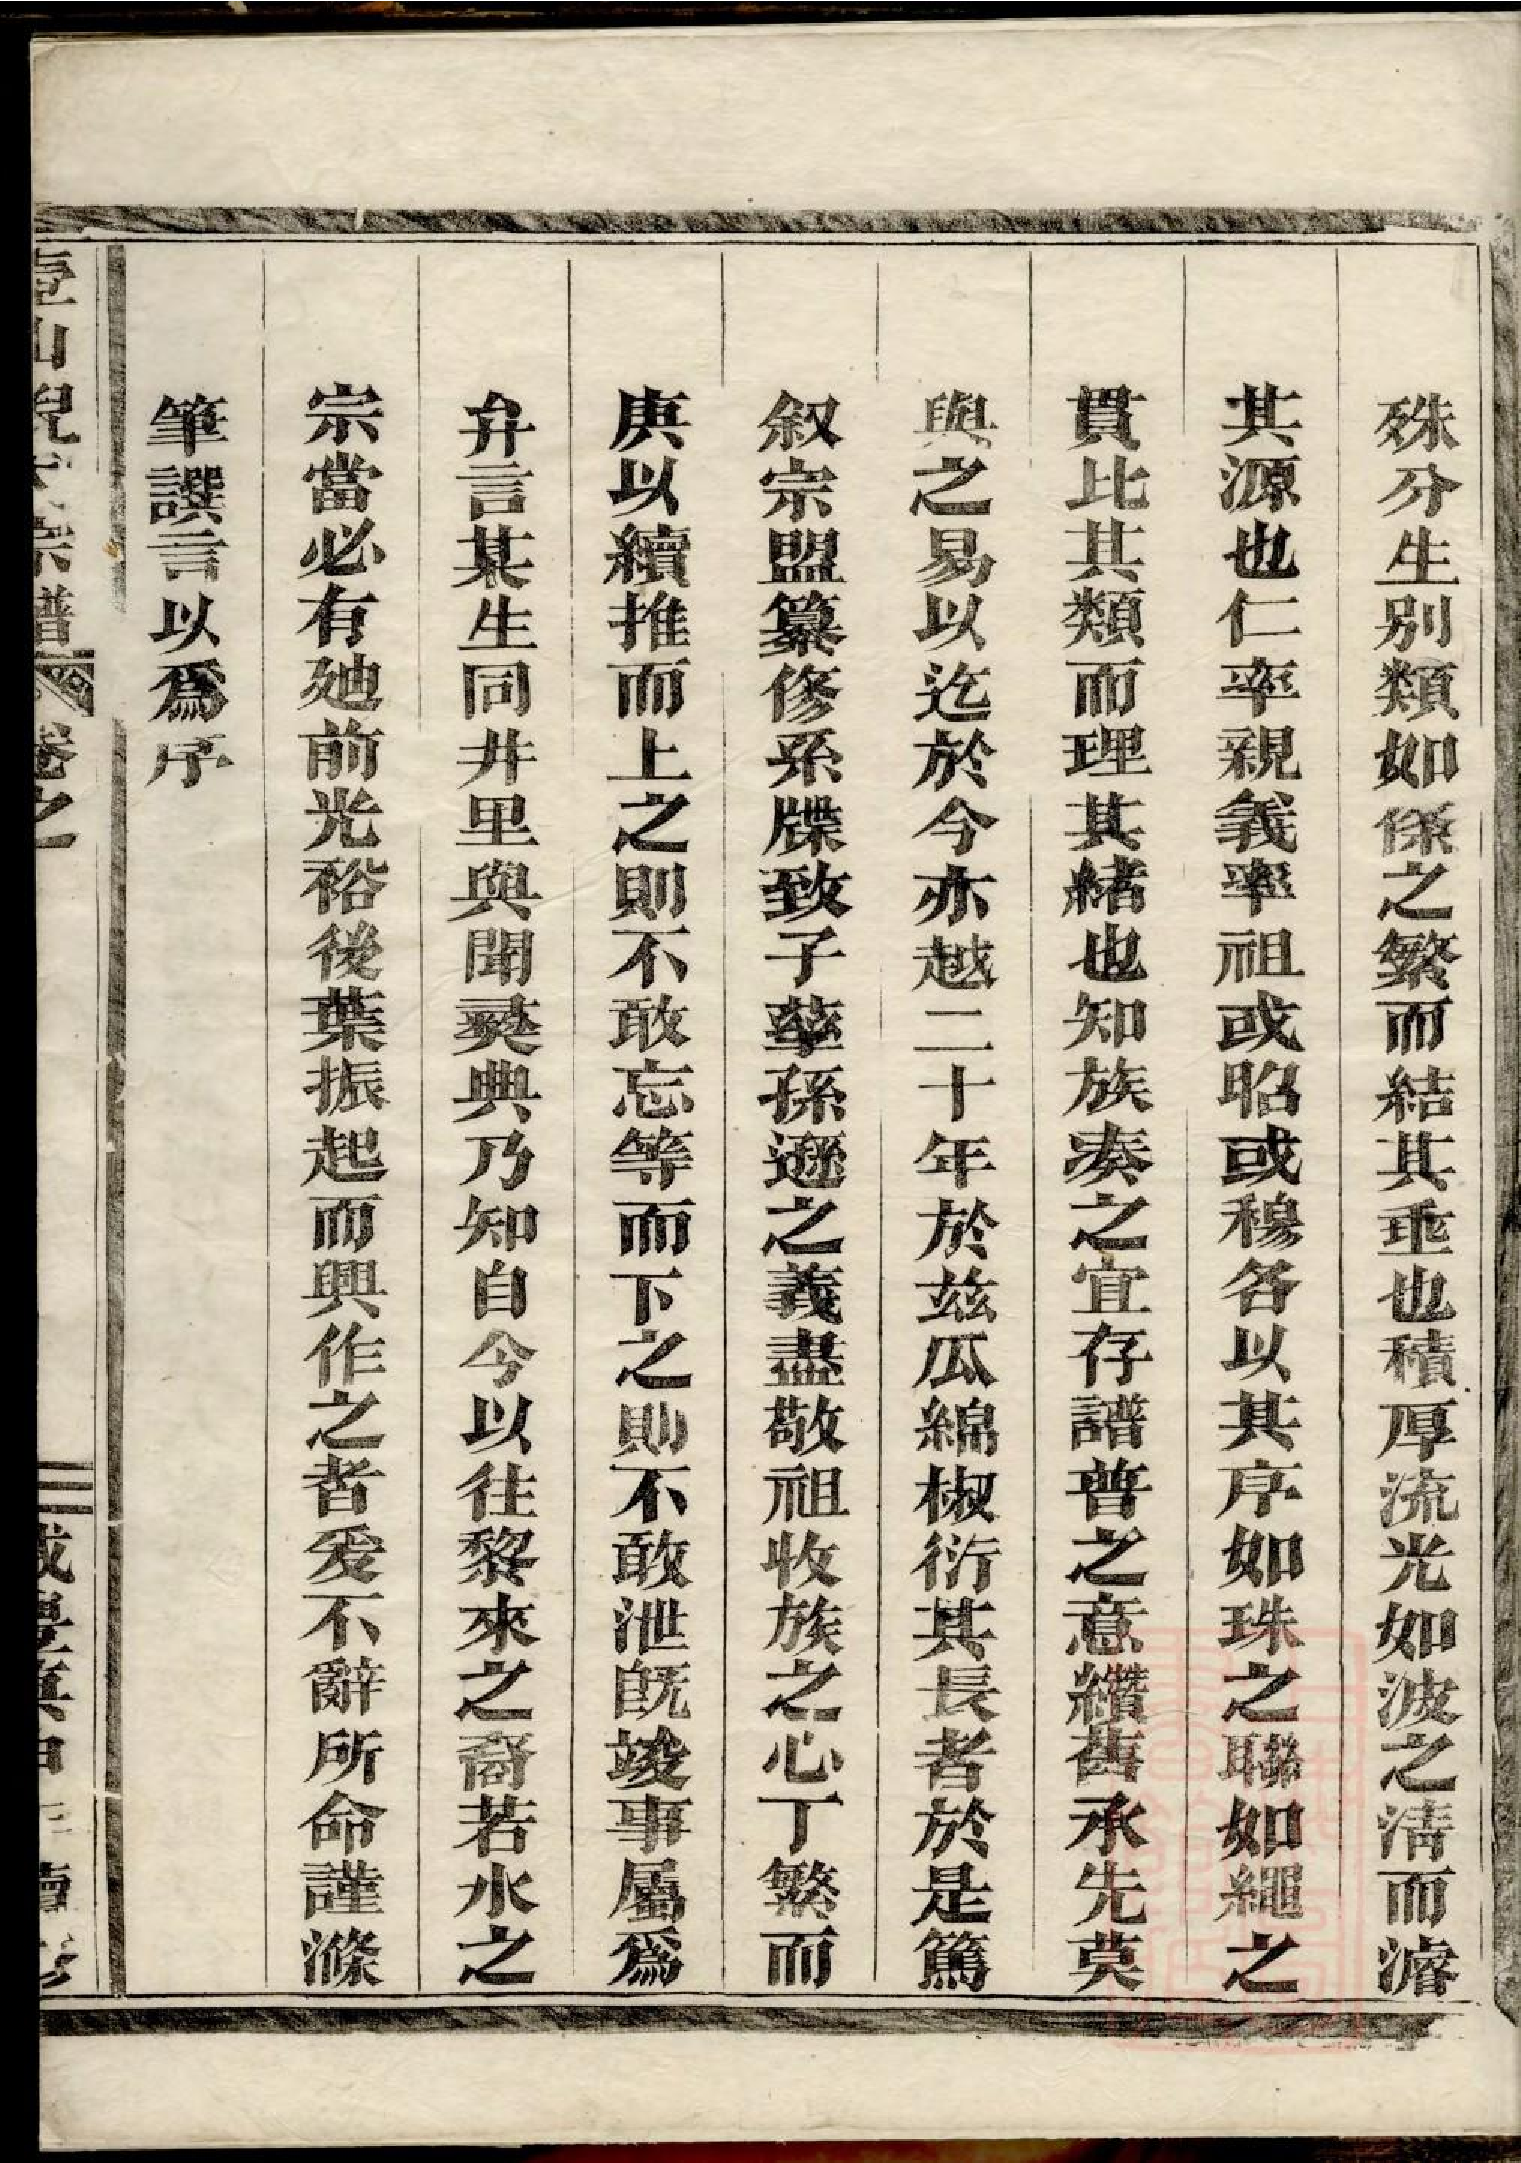 殊分生别類如係之繁而結其垂也積厚流光如波之淸而濬
其源也仁率親義率祖或昭或穆各以其序如珠之聯如繩之
貫比其類而理其緒也知族奏之宜存譜普之意纘舊承先莫
與之易以迄於今亦越二十年於兹瓜綿椒衍其長者於是篤
叙宗盟纂修系牒致子孳孫遜之義盡敬祖收族之心丁繁而
庚以續推而上之則不敢忘等而下之則不敢泄旣竣事屬爲
弁言某生同井里與聞彛典乃知自今以往黎來之裔若水之
宗當必有廸前光裕後葉振起而興作之者爰不辭所命謹滌
筆譔言以爲序
山倪氏宗譜 卷之 三 咸豊庚申年續修